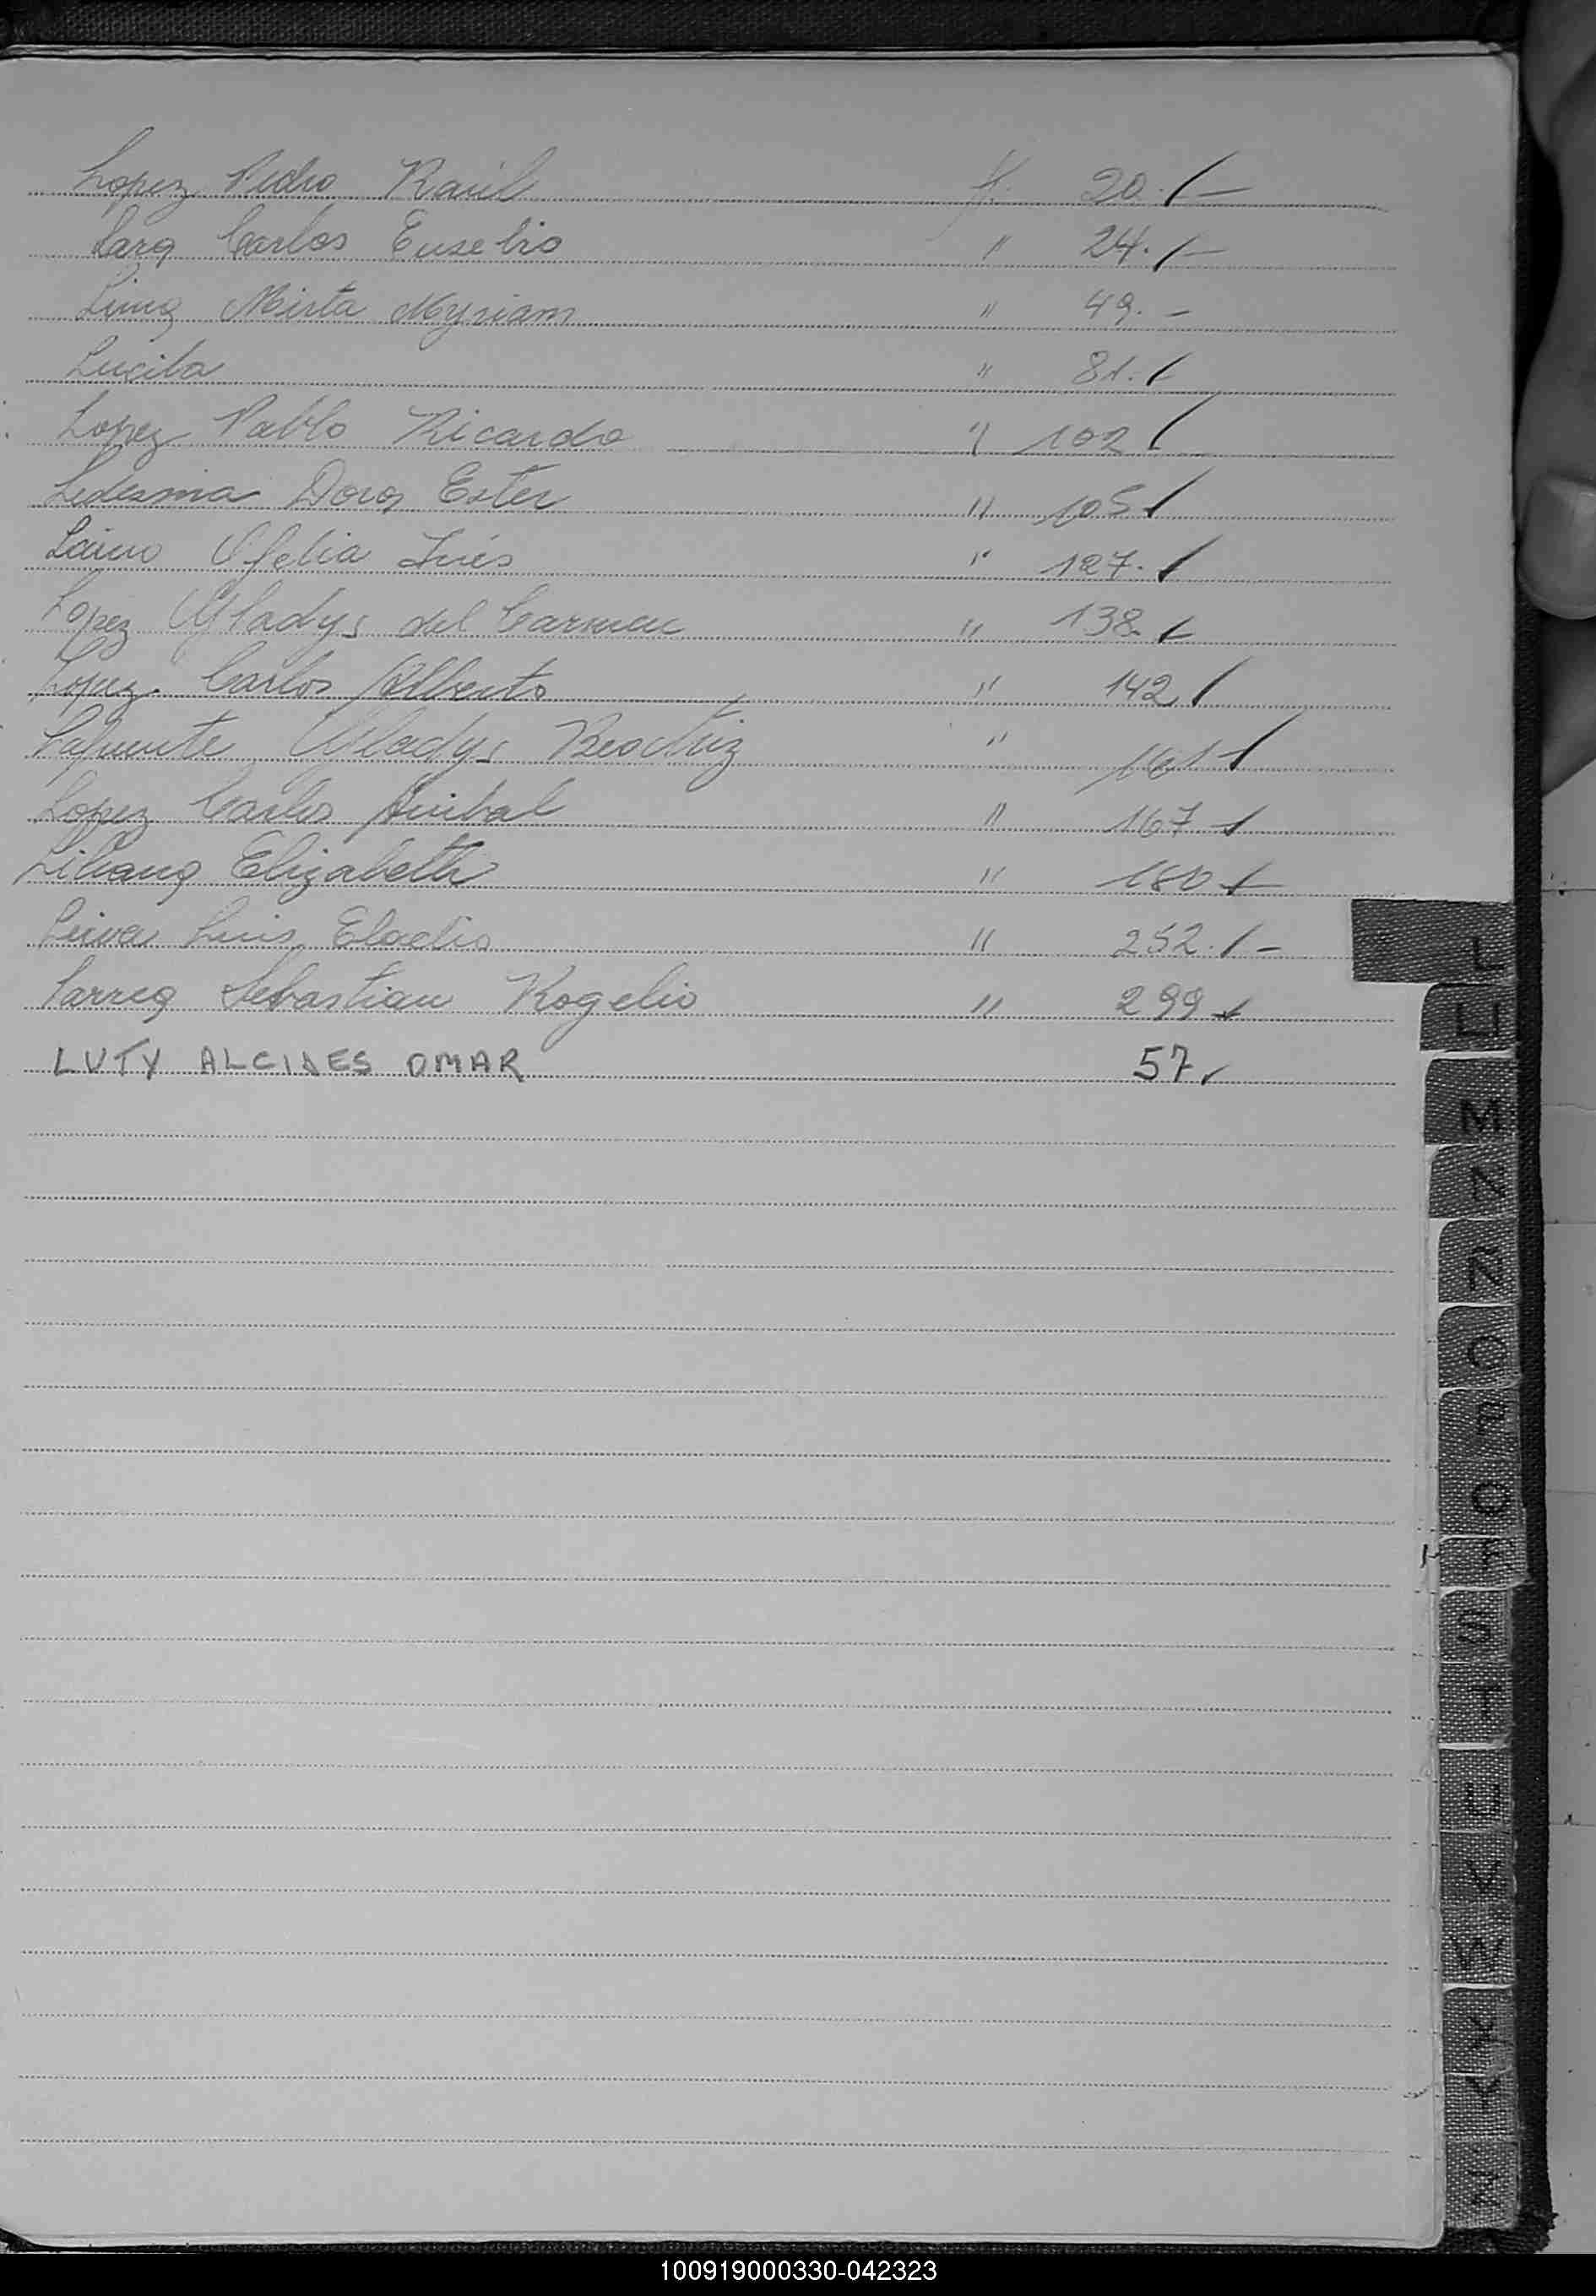 Lopez Pedro Raúl f. 20. / -
Lara Carlos Eusebio " 24. / -
Lima Mirta Myriam " 49. -
Lucila " 81. /
Lopez Pablo Ricardo " 102 /
Ledesma Dora Ester " 105 /
Laino Ofelia Inés " 127. /
Lopez Gladys del Carmen " 138. /
Lopez Carlos Alberto " 142 /
Lafuente Gladys Beatriz " 161 /
Lopez Carlos Anibal " 167 /
Liliana Elizabeth " 180 /
Leiva Luis Eladio " 252. / -
Larrea Sebastian Rogelio " 299 /
LUTY ALCIDES OMAR 57 ✓
L
LL
M
N
Ñ
O
P
Q
R
S
T
U
V
W
X
Y
Z
100919000330-042323